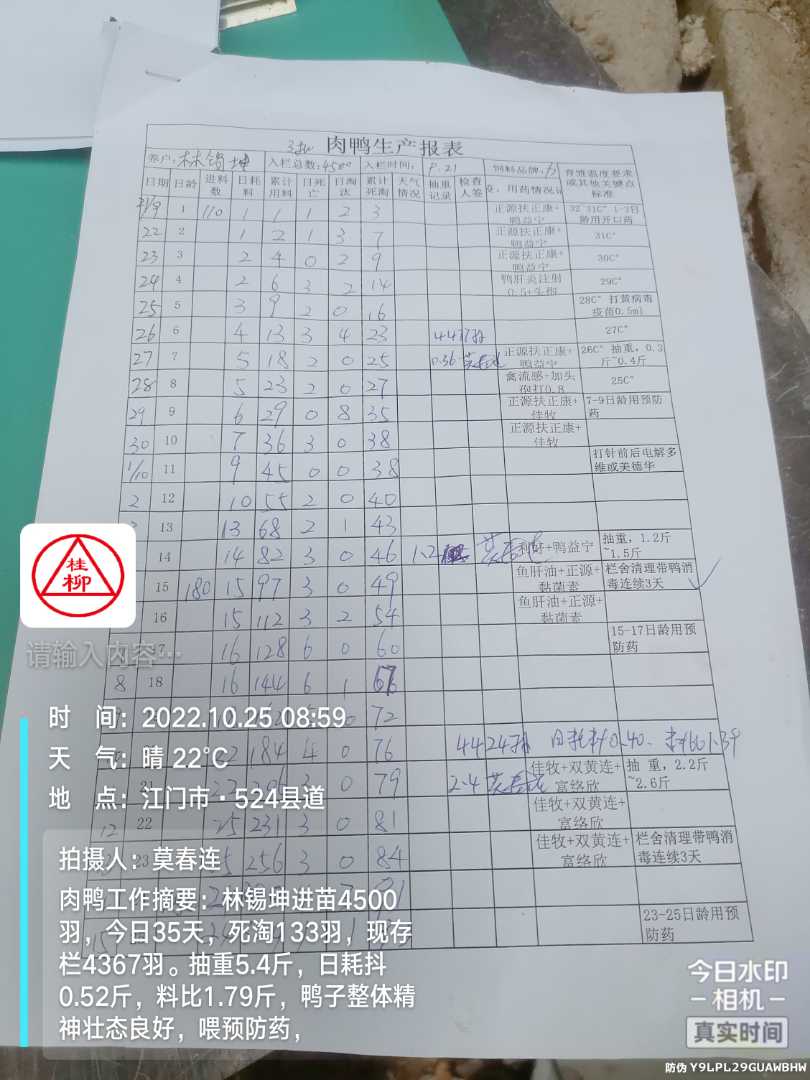 3批 肉鸭生产报表
养户: 林锡坤 入栏总数: 4500 入栏时间: 9.21 饲料品牌: 育雏温度要求或其他关键点标准
日期 日龄 进料数 日耗料 累计用料 日死亡 日淘汰 累计死淘 天气情况 抽重记录 检查人签 用药情况
21/9 1 110 1 1 1 2 3 正源扶正康+鸭益宁 32~31C° 1-3日龄用开口药
22 2 1 2 1 3 7 正源扶正康+鸭益宁 31C°
23 3 2 4 0 2 9 正源扶正康+鸭益宁 30C°
24 4 2 6 3 2 14 鸭肝炎注射 29C°
25 5 3 9 2 0 16 28C° 打黄病毒疫苗0.5ml
26 6 4 13 3 4 23 27C°
27 7 5 18 2 0 25 0.36 正源扶正康+鸭益宁 26C° 抽重，0.3斤~0.4斤
28 8 5 23 2 0 27 禽流感+加头孢打0.8 25C°
29 9 6 29 0 8 35 正源扶正康+佳牧 7-9日龄用预防药
30 10 7 36 3 0 38 正源扶正康+佳牧
1/10 11 9 45 0 0 38 打针前后电解多维或美德华
2 12 10 55 2 0 40
13 13 68 2 1 43
14 14 82 3 0 46 1.2 +鸭益宁 抽重，1.2斤~1.5斤
15 180 15 97 3 0 49 鱼肝油+正源+黏菌素 栏舍清理带鸭消毒连续3天
16 15 112 3 2 54 鱼肝油+正源+黏菌素
17 16 128 6 0 60 15-17日龄用预防药
8 18 16 144 6 1 67
0 72
184 4 0 76 4424羽 日耗料0.40. 料比1.39
21 22 3 0 79 2.4 佳牧+双黄连+富络欣 抽重，2.2斤~2.6斤
12 22 25 231 3 0 81 佳牧+双黄连+富络欣
23 256 3 0 84 佳牧+双黄连+富络欣 栏舍清理带鸭消毒连续3天
23-25日龄用预防药
桂柳
请输入内容…
时 间: 2022.10.25 08:59
天 气: 晴 22℃
地 点: 江门市·524县道
拍摄人: 莫春连
肉鸭工作摘要: 林锡坤进苗4500
羽，今日35天，死淘133羽，现存
栏4367羽。抽重5.4斤，日耗抖
0.52斤，料比1.79斤，鸭子整体精
神壮态良好，喂预防药，
今日水印
－相机－
真实时间
防伪 Y9LPL29GUAWBHW